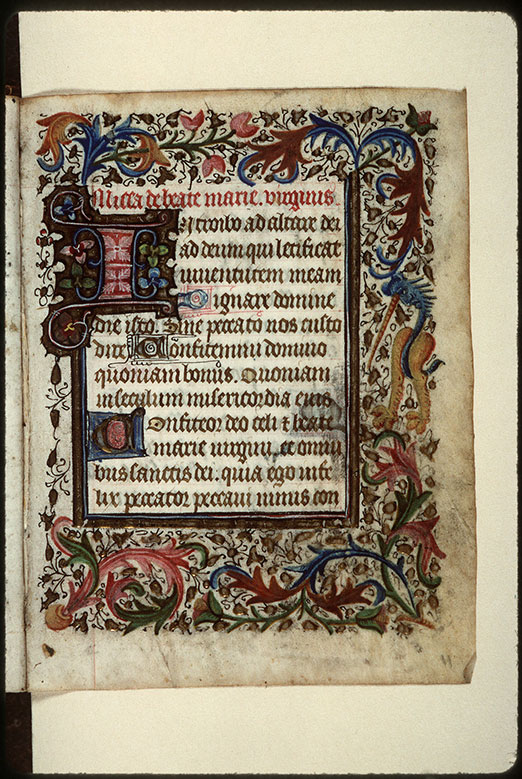 Missa de beate marie. virginis
Introibo ad altare dei
ad deum qui letificat
iuuentutem meam
Dignare domine
die isto. Sine peccato nos custo
dire Confitemini domino
quoniam bonus. Quoniam
in seculum misericordia eius
Confiteor deo celi & beate
marie virgini, et omni
bus sanctis dei. quia ego infe
lix peccator peccaui nimis con